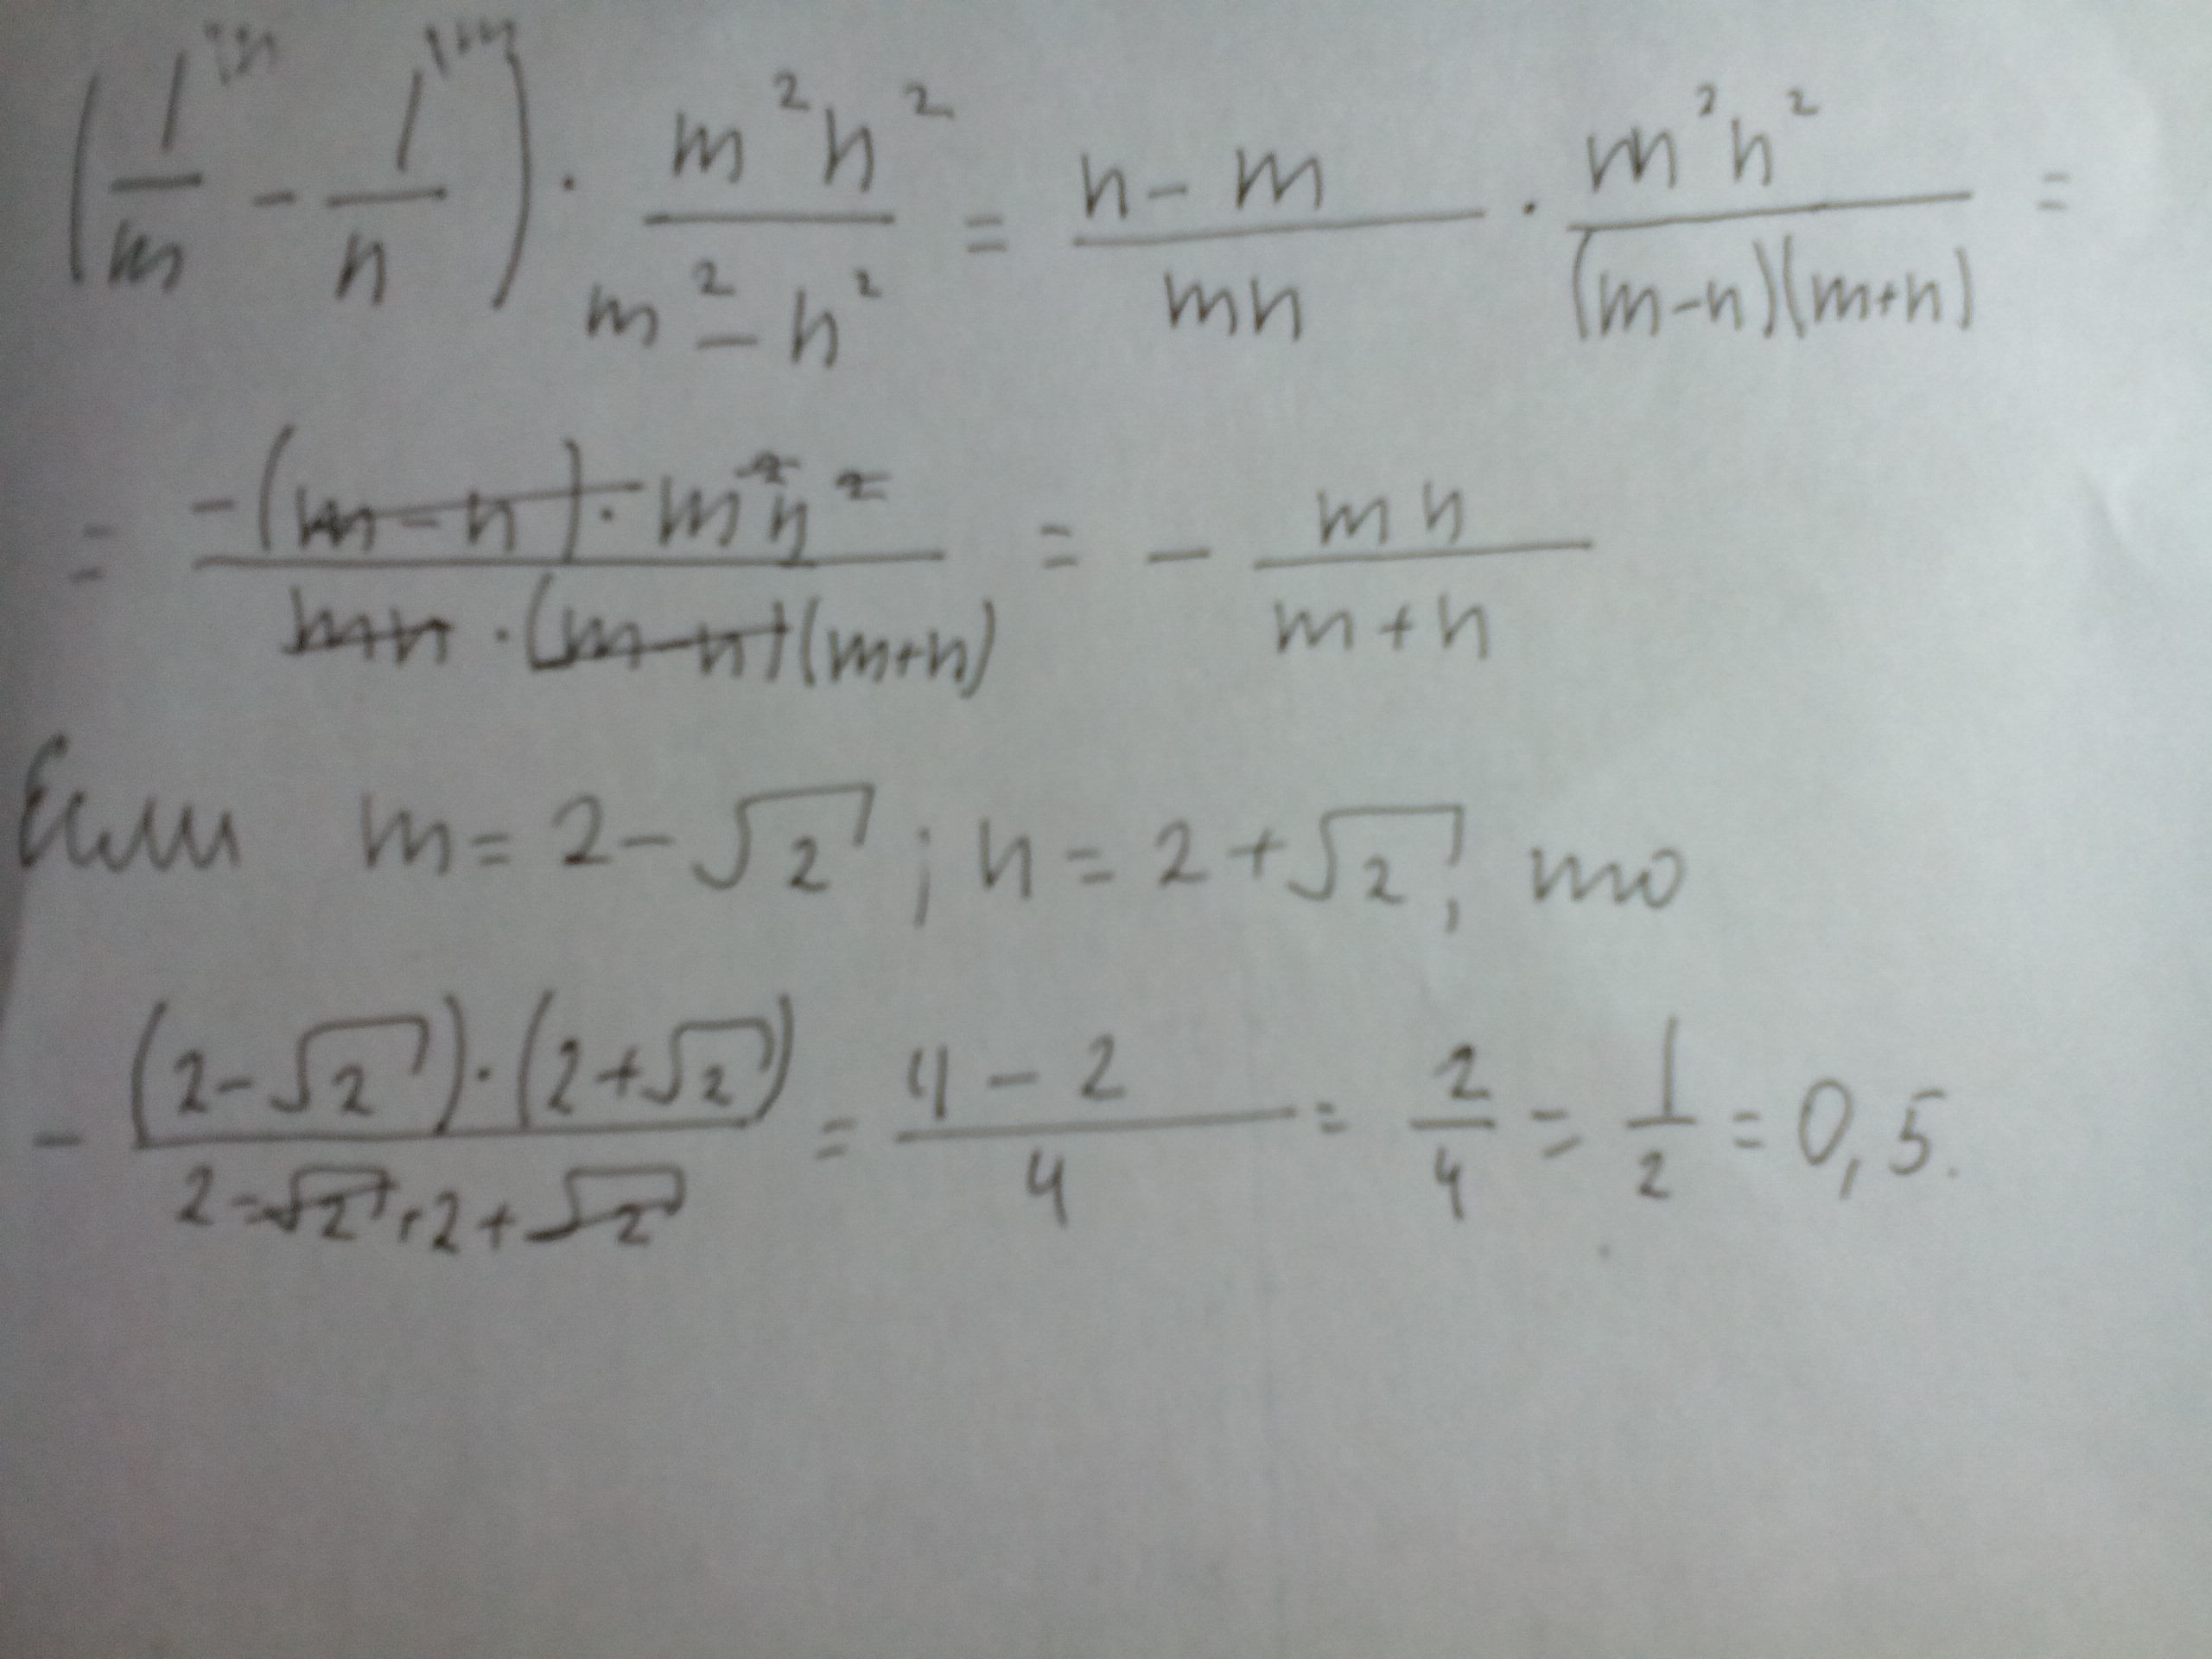 (1/m - 1/n) · m²n²/m² - n² = n - m/mn · m²n²/(m-n)(m+n) =
= -(m-n)·m²n²/mn·(m-n)(m+n) = - mn/m+n
Если m = 2 - √2 ; n = 2 + √2 ; то
- (2-√2)·(2+√2)/2-√2+2+√2 = 4 - 2/4 = 2/4 = 1/2 = 0,5.